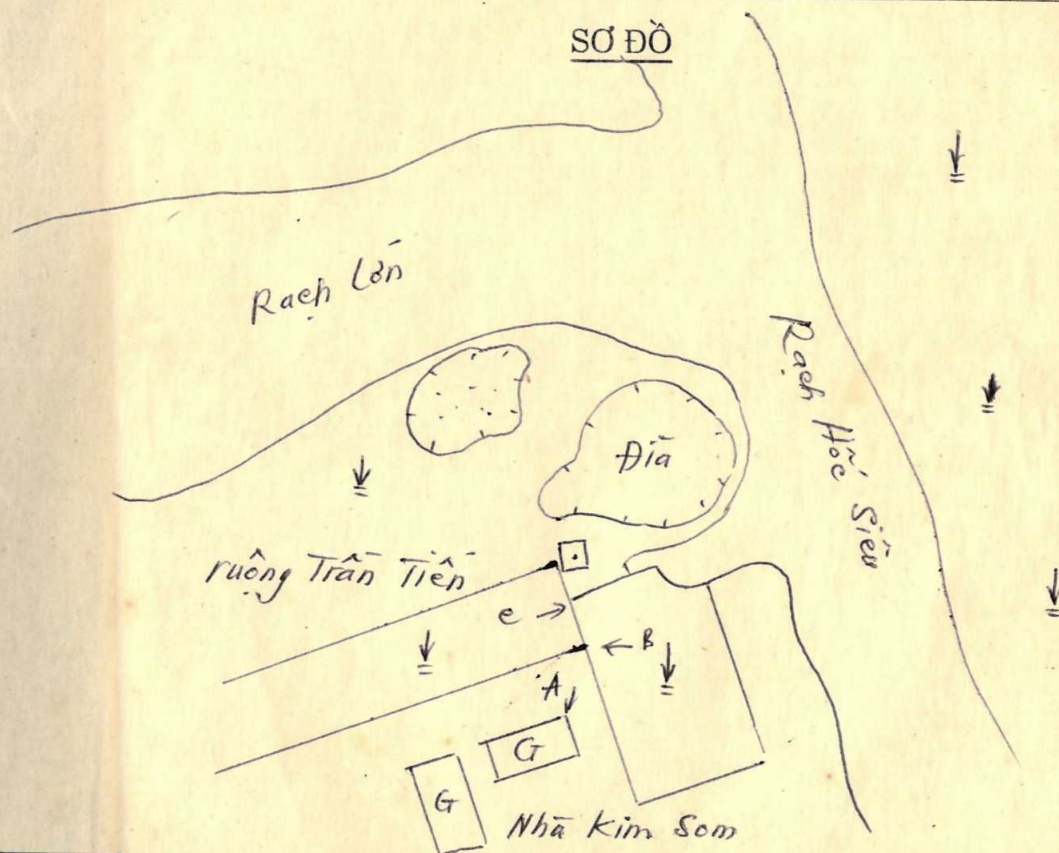 SƠ ĐỒ
Rạch Lớn
Rạch Hốc Siêu
Đìa
ruộng Trần Tiến
e
B
A
G
G
Nhà Kim Som